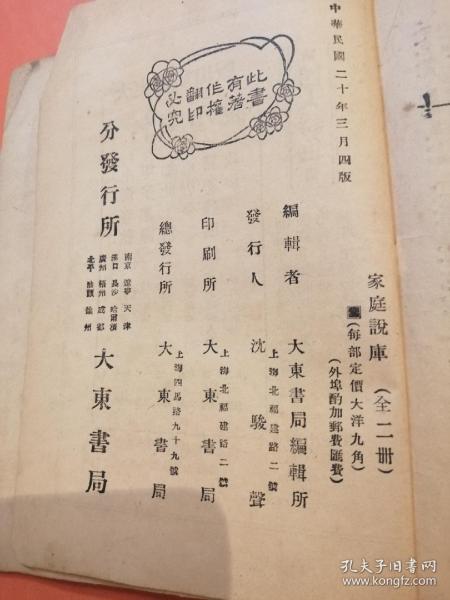 中華民國二十年三月四版
家庭說庫（全二冊）
（每部定價大洋九角）
（外埠酌加郵費匯費）
編輯者 大東書局編輯所
發行人 沈駿聲
上海北福建路二號
印刷所 大東書局
上海北福建路二號
總發行所 大東書局
上海四馬路九十九號
分發行所 大東書局
南京 遼寧 天津
漢口 長沙 哈爾濱
廣州 梧州 成都
北平 汕頭 徐州
此書
有著
作權
翻印
必究
孔夫子旧书网
www.kongfz.com